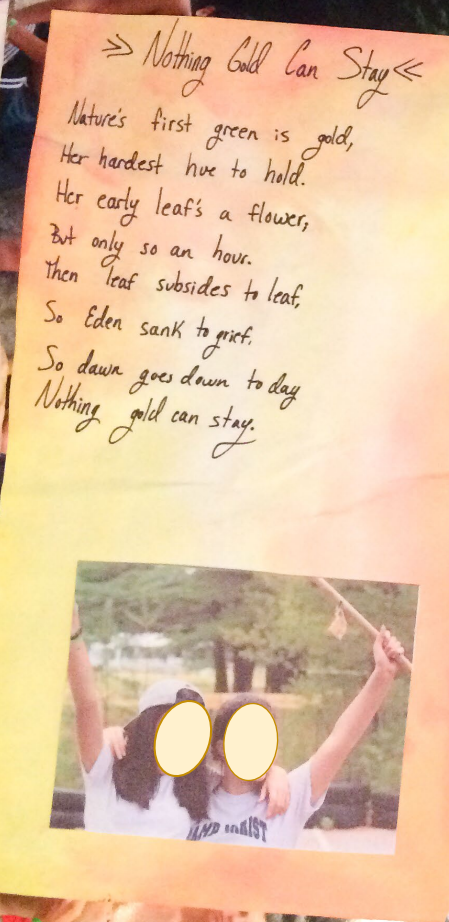 >> Nothing Gold Can Stay <<
Nature's first green is gold,
Her hardest hue to hold.
Her early leaf's a flower;
But only so an hour.
Then leaf subsides to leaf,
So Eden sank to grief,
So dawn goes down to day
Nothing gold can stay.